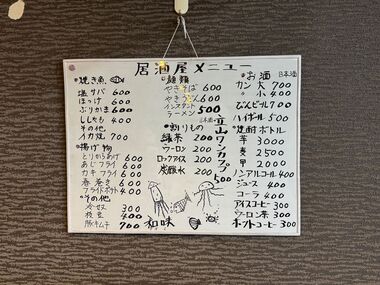 居酒屋メニュー
焼き魚
塩サバ 600
ほっけ 600
ぶりかま 600
ししゃも 400
その他
イカ焼 700
揚げ物
とりからあげ 600
あじフライ 600
カキフライ 600
春巻き 600
フライドポテト 400
その他
冷奴 300
枝豆 400
豚キムチ 700
麺類
やきそば 600
やきうどん 600
インスタント
ラーメン 500
割りもの
緑茶 200
ウーロン 200
ロックアイス 200
炭酸水 200
和味
日本酒
立山ワンカップ
500
お酒 日本酒
カン 大 700
〃 小 400
びんビール 700
ハイボール 500
焼酎ボトル
芋 3000
麦 2500
甲 2000
ノンアルコール 400
ジュース 400
コーラ 400
アイスコーヒー 300
ウーロン茶 300
ホットコーヒー 300